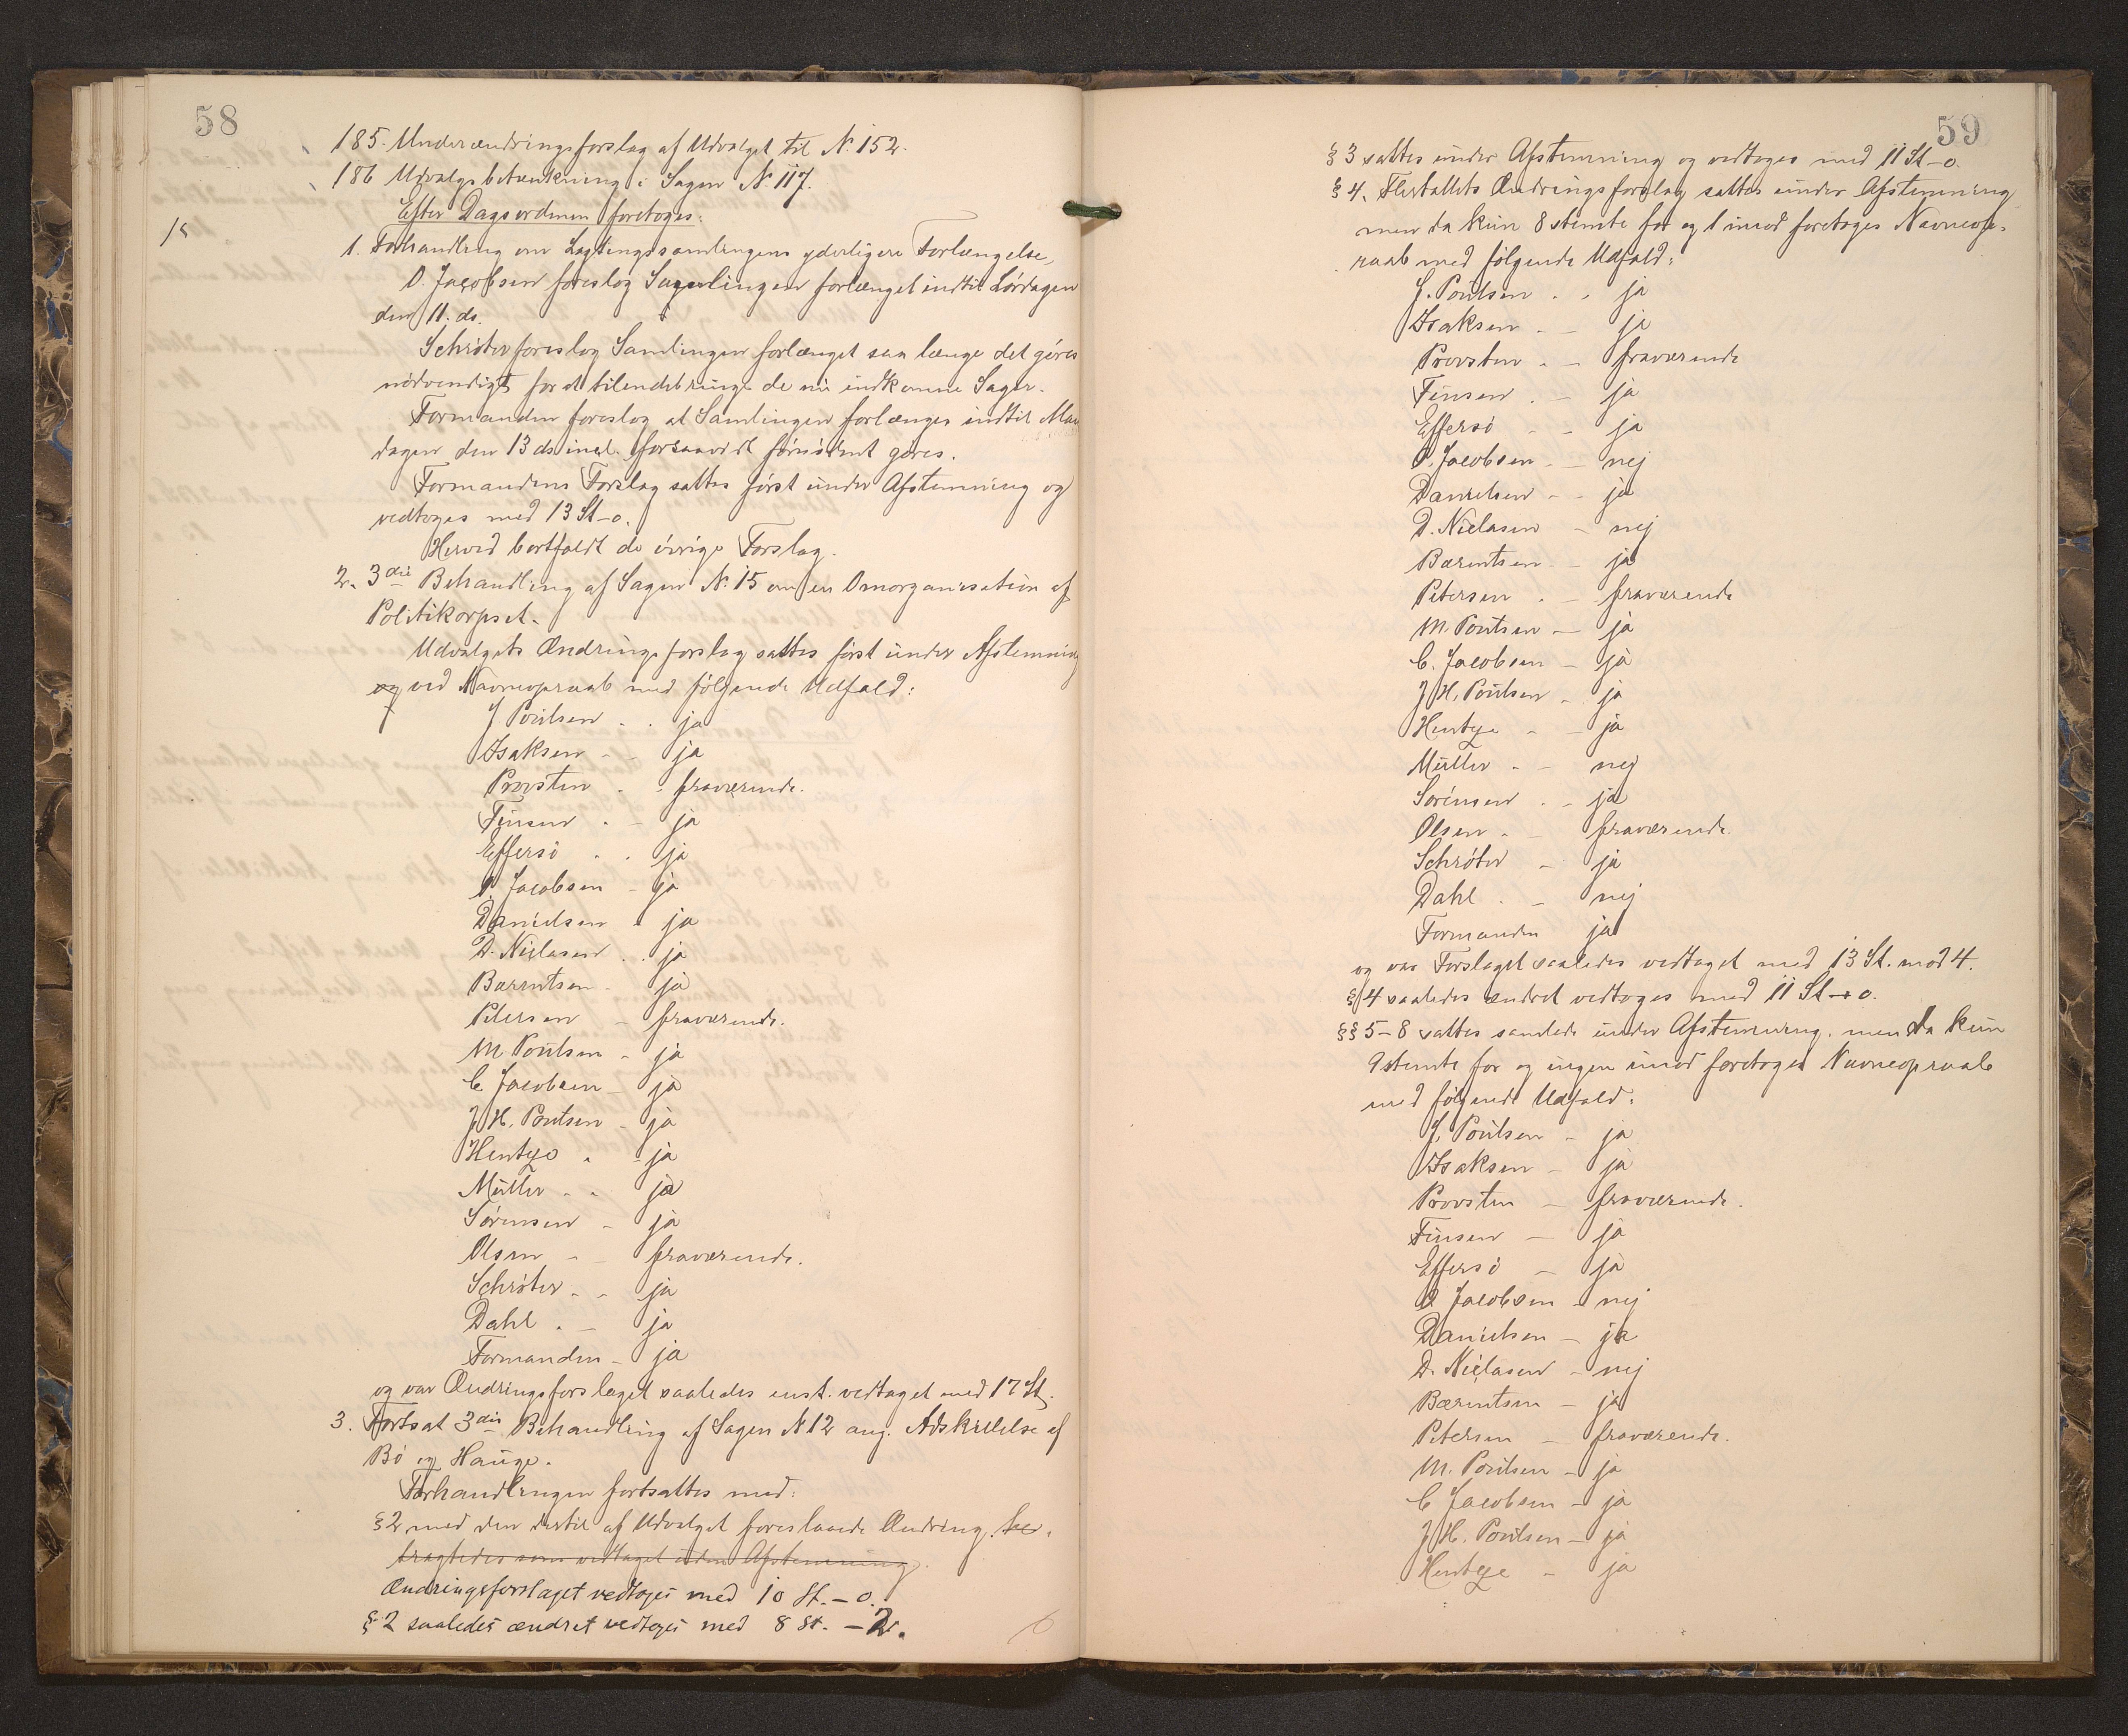 58
185. Underændringsforslag af Udvalget til N. 152.
186 Udvalgsbetænkning i Sagen N. 117.
Efter Dagsordenen foretoges:
1. Forhandling om Lagtingssamlingens yderligere Forlængelse,
O. Jacobsen foreslog Samlingen forlænget indtil Lørdagen
den 11. ds.
Schrøter foreslog Samlingen forlænget saa længe det gøres
nødvendigt for at tilendebringe de nu indkomne Sager.
Formanden foreslog at Samlingen forlænges indtil Man
dagen den 13 ds incl. forsaavidt fornødent gøres.
Formandens Forslag sattes først under Afstemning og
vedtoges med 13 St - 0.
Herved bortfaldt de øvrige Forslag.
2. 3die Behandling af Sagen N. 15 om en Omorganisation af
Politikorpset.
Udvalgets Ændringsforslag sattes først under Afstemning
og ved Navneopraab med følgende Udfald:
J Poulsen . . ja
Isaksen - - ja
Provsten . . fraværende.
Finsen . - ja
Effersö . . ja
O. Jacobsen - ja
Danielsen - ja
D. Nielasen . . ja
Bærentsen - ja
Petersen - fraværende.
M Poulsen - ja
C Jacobsen - ja
J H. Poulsen - ja
Hentze . - ja
Müller . . ja
Sørensen - ja
Olsen - - fraværende.
Schrøter . - ja
Dahl . - ja
Formanden - ja
og var Ændringsforslaget saaledes enst. vedtaget med 17 St.
3. Fortsat 3die Behandling af Sagen N 12 ang. Adskillelse af
Bø og Hauge.
Forhandlingen fortsattes med:
§ 2 med den dertil af Udvalget foreslaaede Ændring. be-
tragtedes som vedtaget uden Afstemning.
Ændringsforslaget vedtoges med 10 St. - 0.
§ 2 saaledes ændret vedtoges med 8 St. - 2.
59
§ 3 sattes under Afstemning og vedtoges med 11 St - 0.
§ 4. Flertallets Ændringsforslag sattes under Afstemning
men da kun 8 stemte for og 1 imod foretoges Navneop-
raab med følgende Udfald:
J. Poulsen . . ja
Isaksen . - ja
Provsten . - fraværende
Finsen . - ja
Effersö - - ja
O. Jacobsen - - nej
Danielsen - - ja
D. Nielasen - nej
Bærentsen - - ja
Petersen . - fraværende
M. Poulsen - ja
C. Jacobsen - ja
J H. Poulsen - ja
Hentze - - ja
Müller . - nej
Sørensen . - ja
Olsen . - fraværende.
Schrøter - ja
Dahl . - nej
Formanden ja
og var Forslaget saaledes vedtaget med 13 St. mod 4.
§ 4 saaledes ændret vedtoges med 11 St - 0.
§§ 5-8 sattes samlede under Afstemning, men da kun
9 stemte for og ingen imod foretoges Navneopraab
med følgende Udfald:
J. Poulsen - ja
Isaksen - ja
Provsten - fraværende.
Finsen - ja
Effersö - ja
O Jacobsen - nej
Danielsen - ja
D. Nielasen - nej
Bærentsen - ja
Petersen - fraværende.
M. Poulsen - ja
C Jacobsen - ja
J H. Poulsen - ja
Hentze - ja